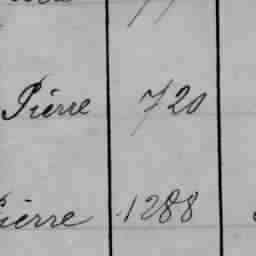 Pierre 720
Pierre 1288